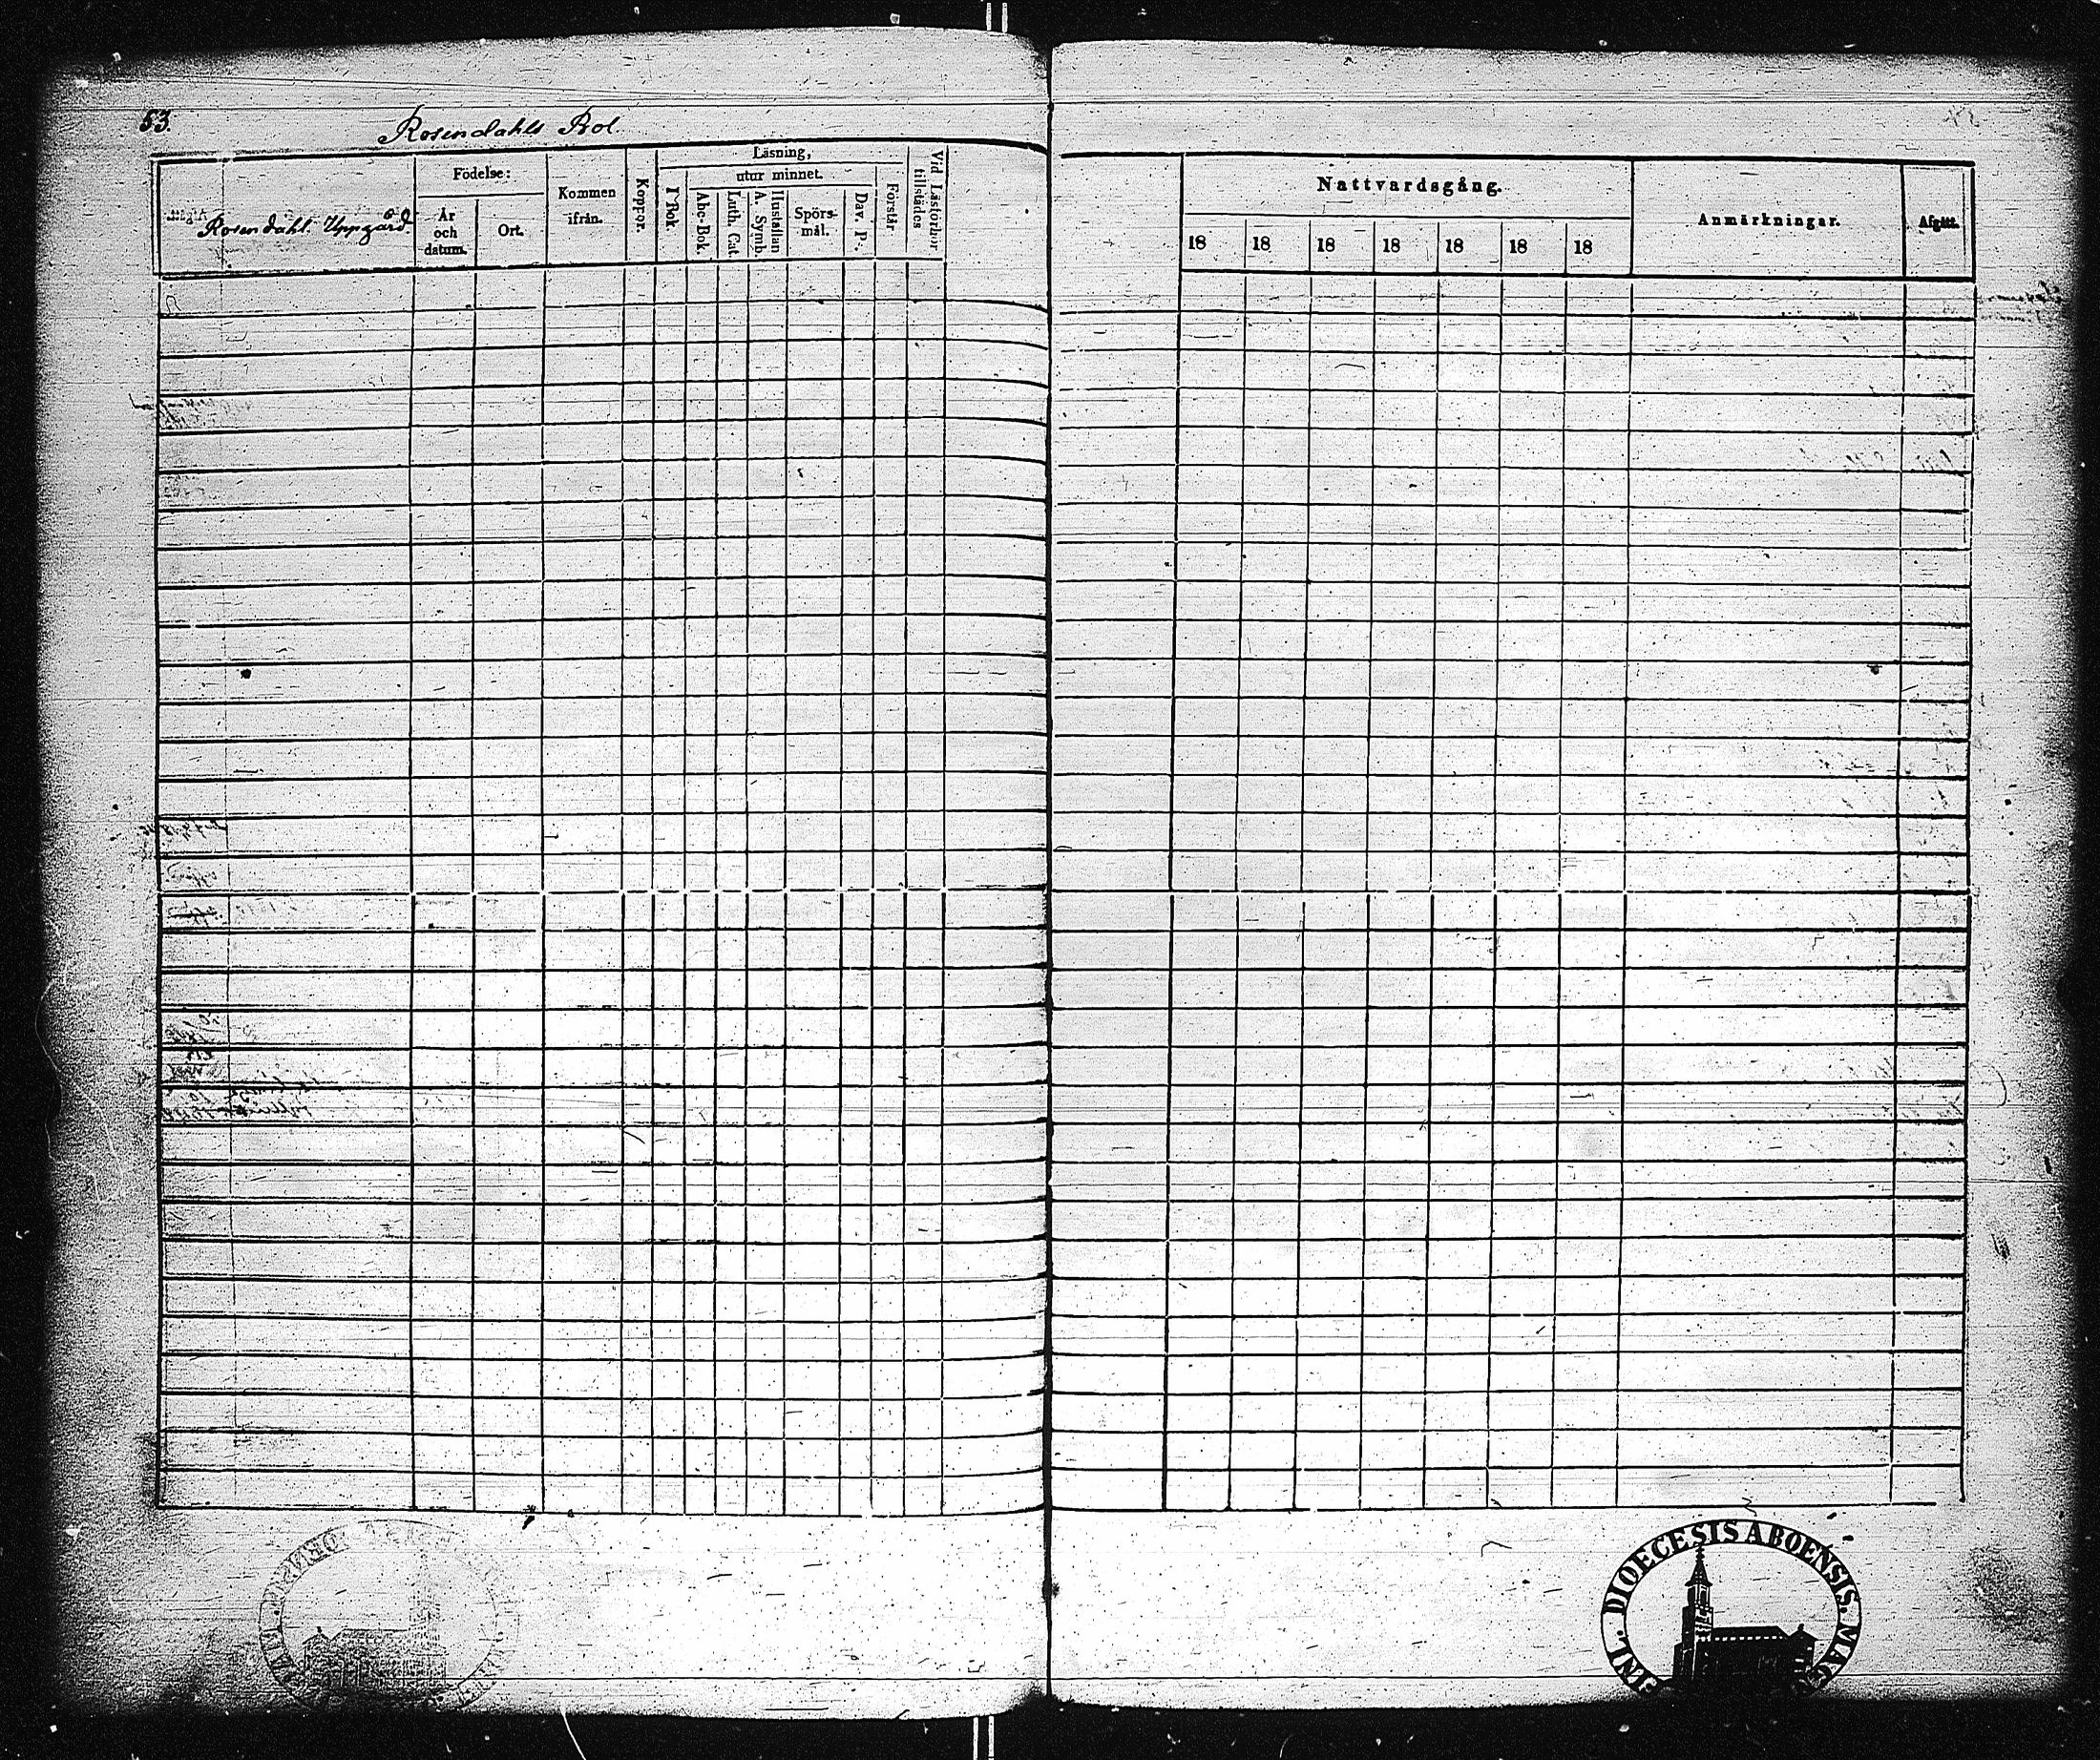 53.
Rosendahls Bol.
Rosendahl. Uppgård.
Födelse:
År och datum.
Ort.
Kommen ifrån.
Koppor.
Läsning,
I Bok.
utur minnet.
Abc-Bok.
Luth. Cat.
Hustaflan A. Symb.
Spörs-mål.
Dav. P.
Förstår
Vid Läsförhör tillstädes
Nattvardsgång.
18 18 18 18 18 18 18
Anmärkningar.
Afgått.
DIOECESIS ABOENSIS. MAG